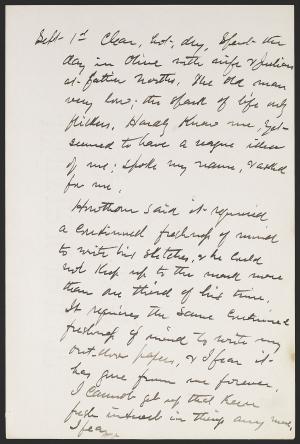 Sept 1st Clear, hot, dry, Spent the
day in Olive with wife & Julian
at father Norths. The old man
very low; the spark of life only
flickers. Hardly knew me, yet
seemed to have a vague idea
of me; spoke my name, & asked
for me.
Hawthorne said it required
a continued freshness of mind
to write his sketches, & he could
not keep up to the mark more
than one third of his time.
It requires the same continued
freshness of mind to write my
out-door papers, & I fear it
has gone from me forever.
I cannot get up that keen
fresh interest in things any more,
I fear.